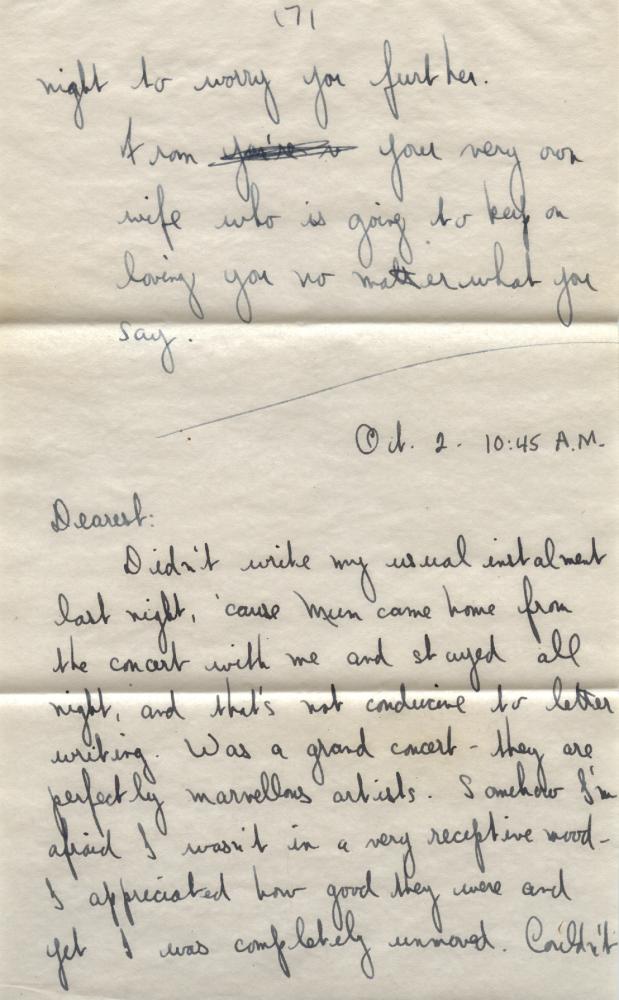 (7)
night to worry you further.
From your very own
wife who is going to keep on
loving you no matter what you
say.
Oct. 2 - 10:45 A.M.
Dearest:
Didn't write my usual instalment
last night, 'cause Mum came home from
the concert with me and stayed all
night, and that's not conducive to letter
writing. Was a grand concert - they are
perfectly marvellous artists. Somehow I'm
afraid I wasn't in a very receptive mood -
I appreciated how good they were and
yet I was completely unmoved. Couldn't